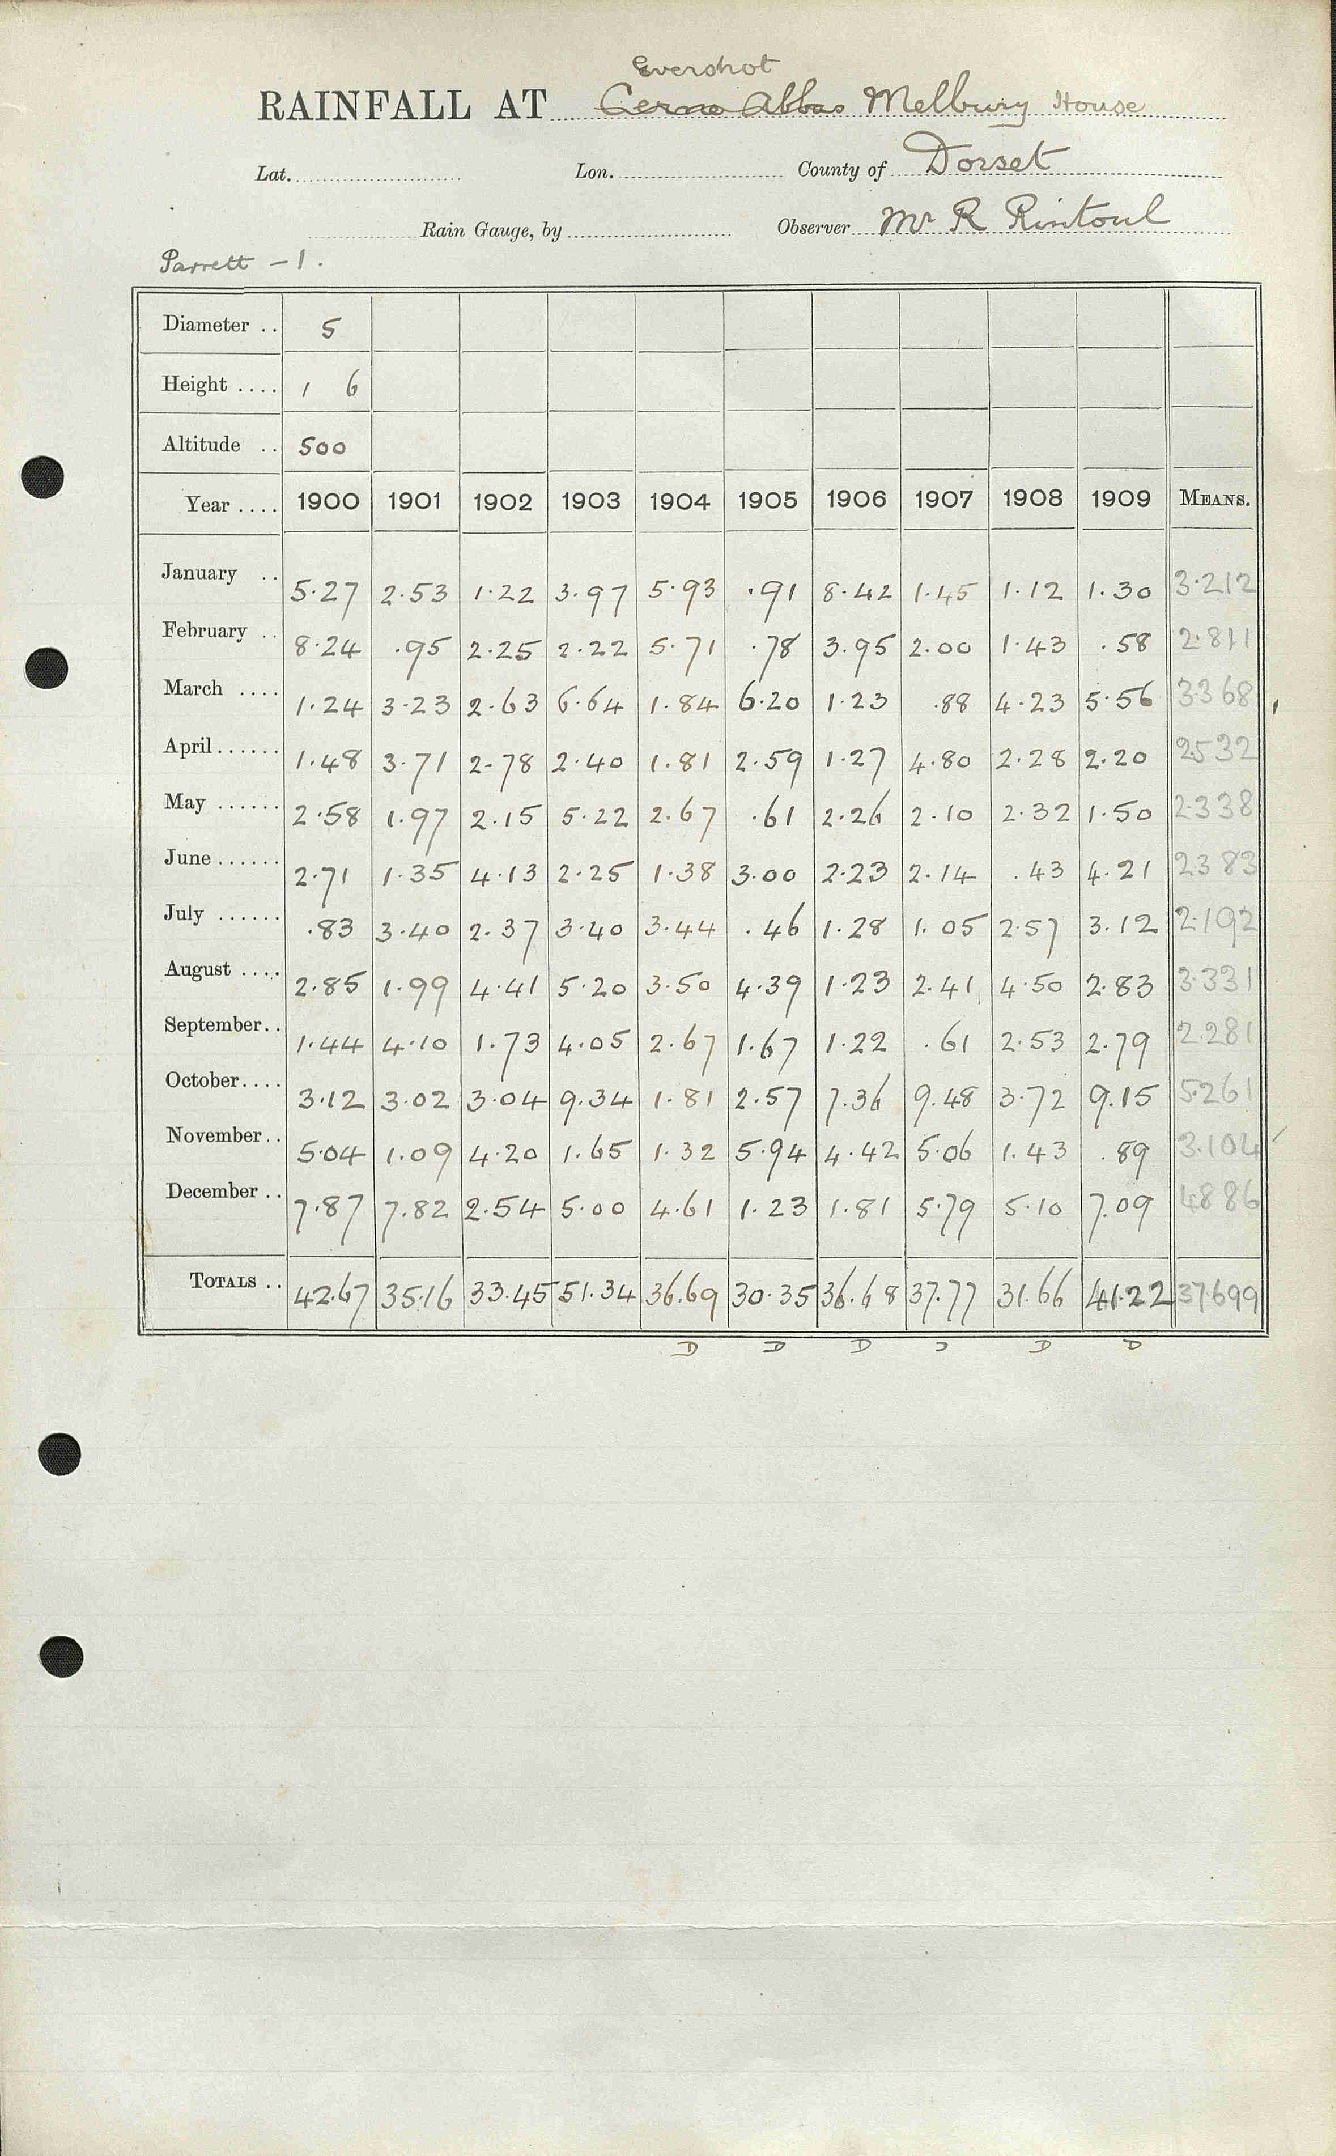 Evershot
RAINFALL AT Cerne Abbas Melbury House
Lat. Lon. County of Dorset
Rain Gauge, by Observer Mr R Rintoul
Parrett - 1.
Diameter .. 5
Height .... 1 6
Altitude .. 500
Year .... 1900 1901 1902 1903 1904 1905 1906 1907 1908 1909 MEANS.
January .. 5.27 2.53 1.22 3.97 5.93 .91 8.42 1.45 1.12 1.30 3.212
February .. 8.24 .95 2.25 2.22 5.71 .78 3.95 2.00 1.43 .58 2.811
March .... 1.24 3.23 2.63 6.64 1.84 6.20 1.23 .88 4.23 5.56 3368
April ...... 1.48 3.71 2.78 2.40 1.81 2.59 1.27 4.80 2.28 2.20 2532
May ...... 2.58 1.97 2.15 5.22 2.67 .61 2.26 2.10 2.32 1.50 2338
June ...... 2.71 1.35 4.13 2.25 1.38 3.00 2.23 2.14 .43 4.21 2383
July ...... .83 3.40 2.37 3.40 3.44 .46 1.28 1.05 2.57 3.12 2.192
August .... 2.85 1.99 4.41 5.20 3.50 4.39 1.23 2.41 4.50 2.83 3.331
September .. 1.44 4.10 1.73 4.05 2.67 1.67 1.22 .61 2.53 2.79 2.281
October .... 3.12 3.02 3.04 9.34 1.81 2.57 7.36 9.48 3.72 9.15 5.261
November .. 5.04 1.09 4.20 1.65 1.32 5.94 4.42 5.06 1.43 .89 3.104
December .. 7.87 7.82 2.54 5.00 4.61 1.23 1.81 5.79 5.10 7.09 4886
TOTALS .. 42.67 35.16 33.45 51.34 36.69 30.35 36.68 37.77 31.66 41.22 37.699
D D D D D D